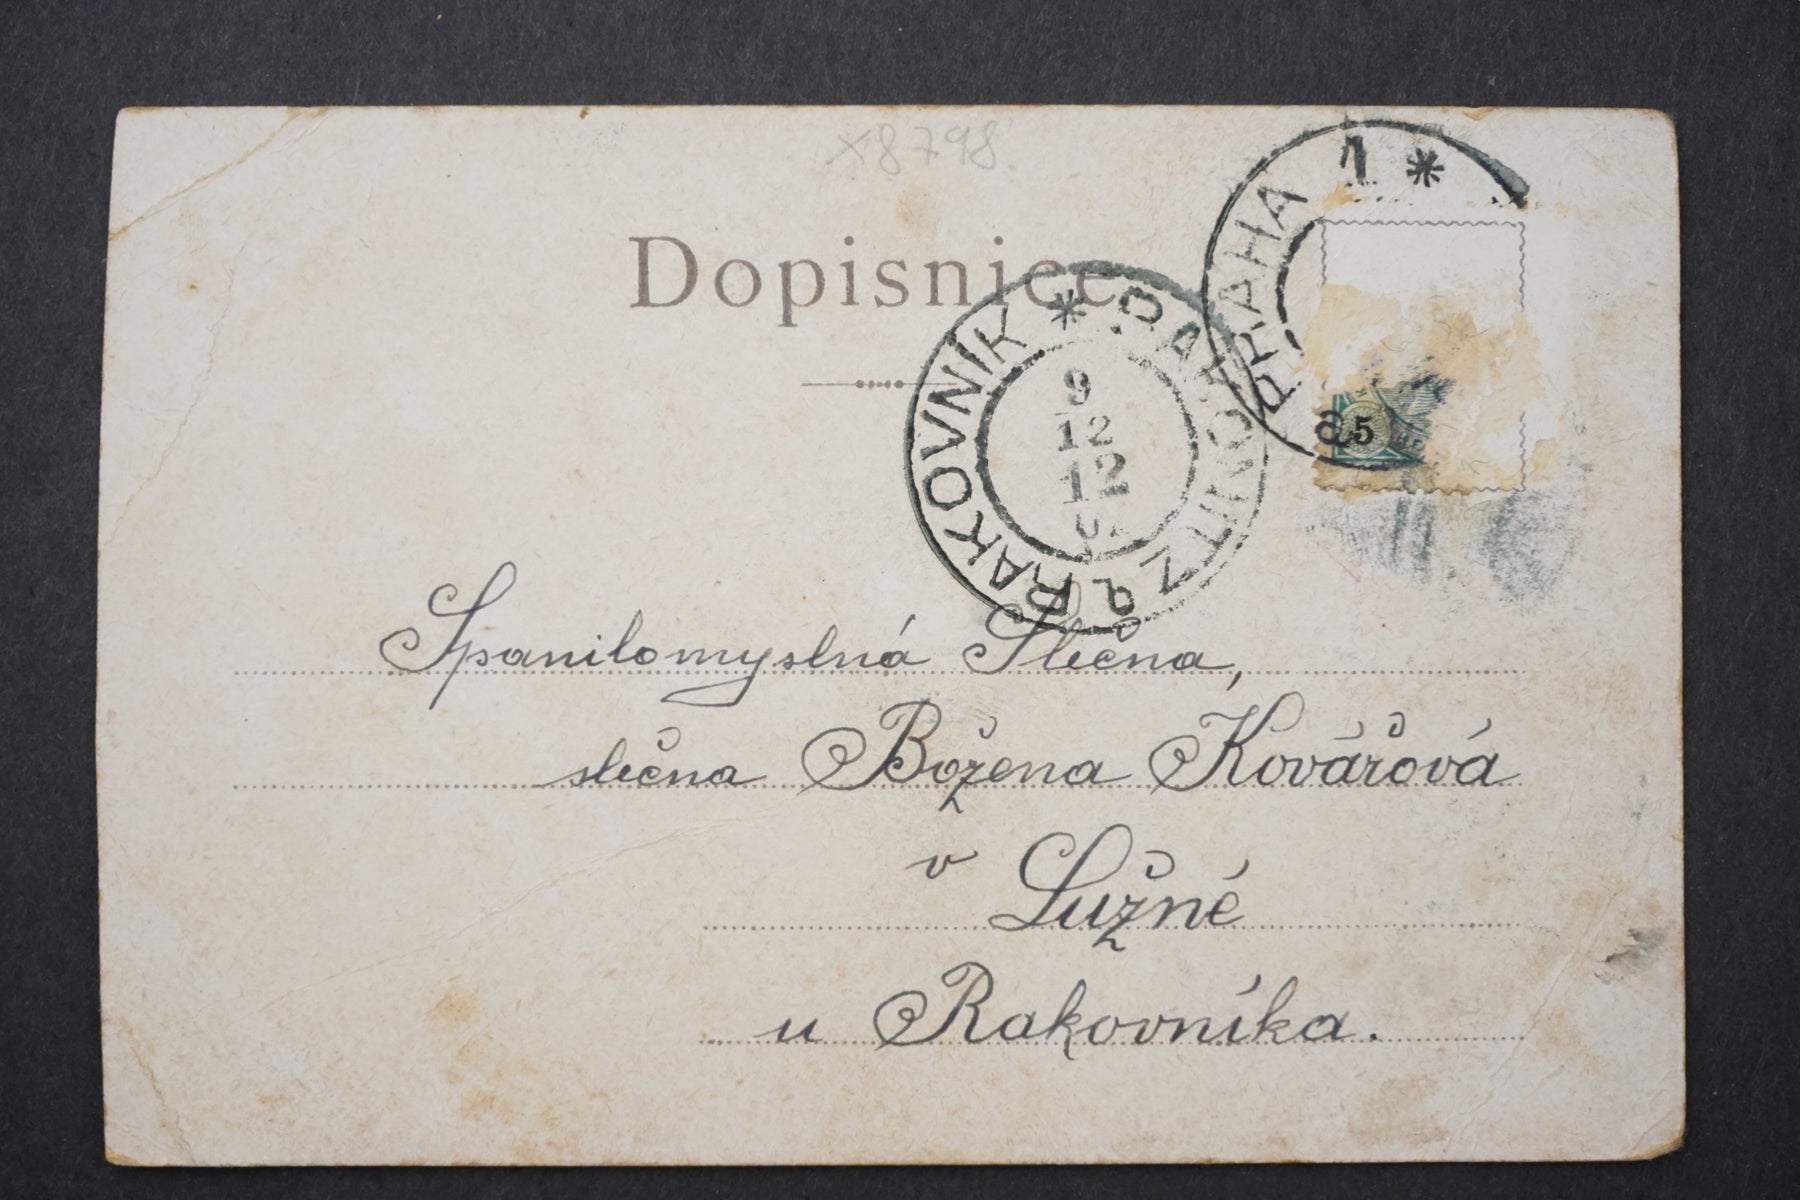 x8798.
Dopisnice
PRAHA 1 *
a
5
RAKOVNIK * RAKONITZ
9
12
12
Spanilomyslná Slečna,
slečna Božena Kovářová
v Lužné
u Rakovníka.